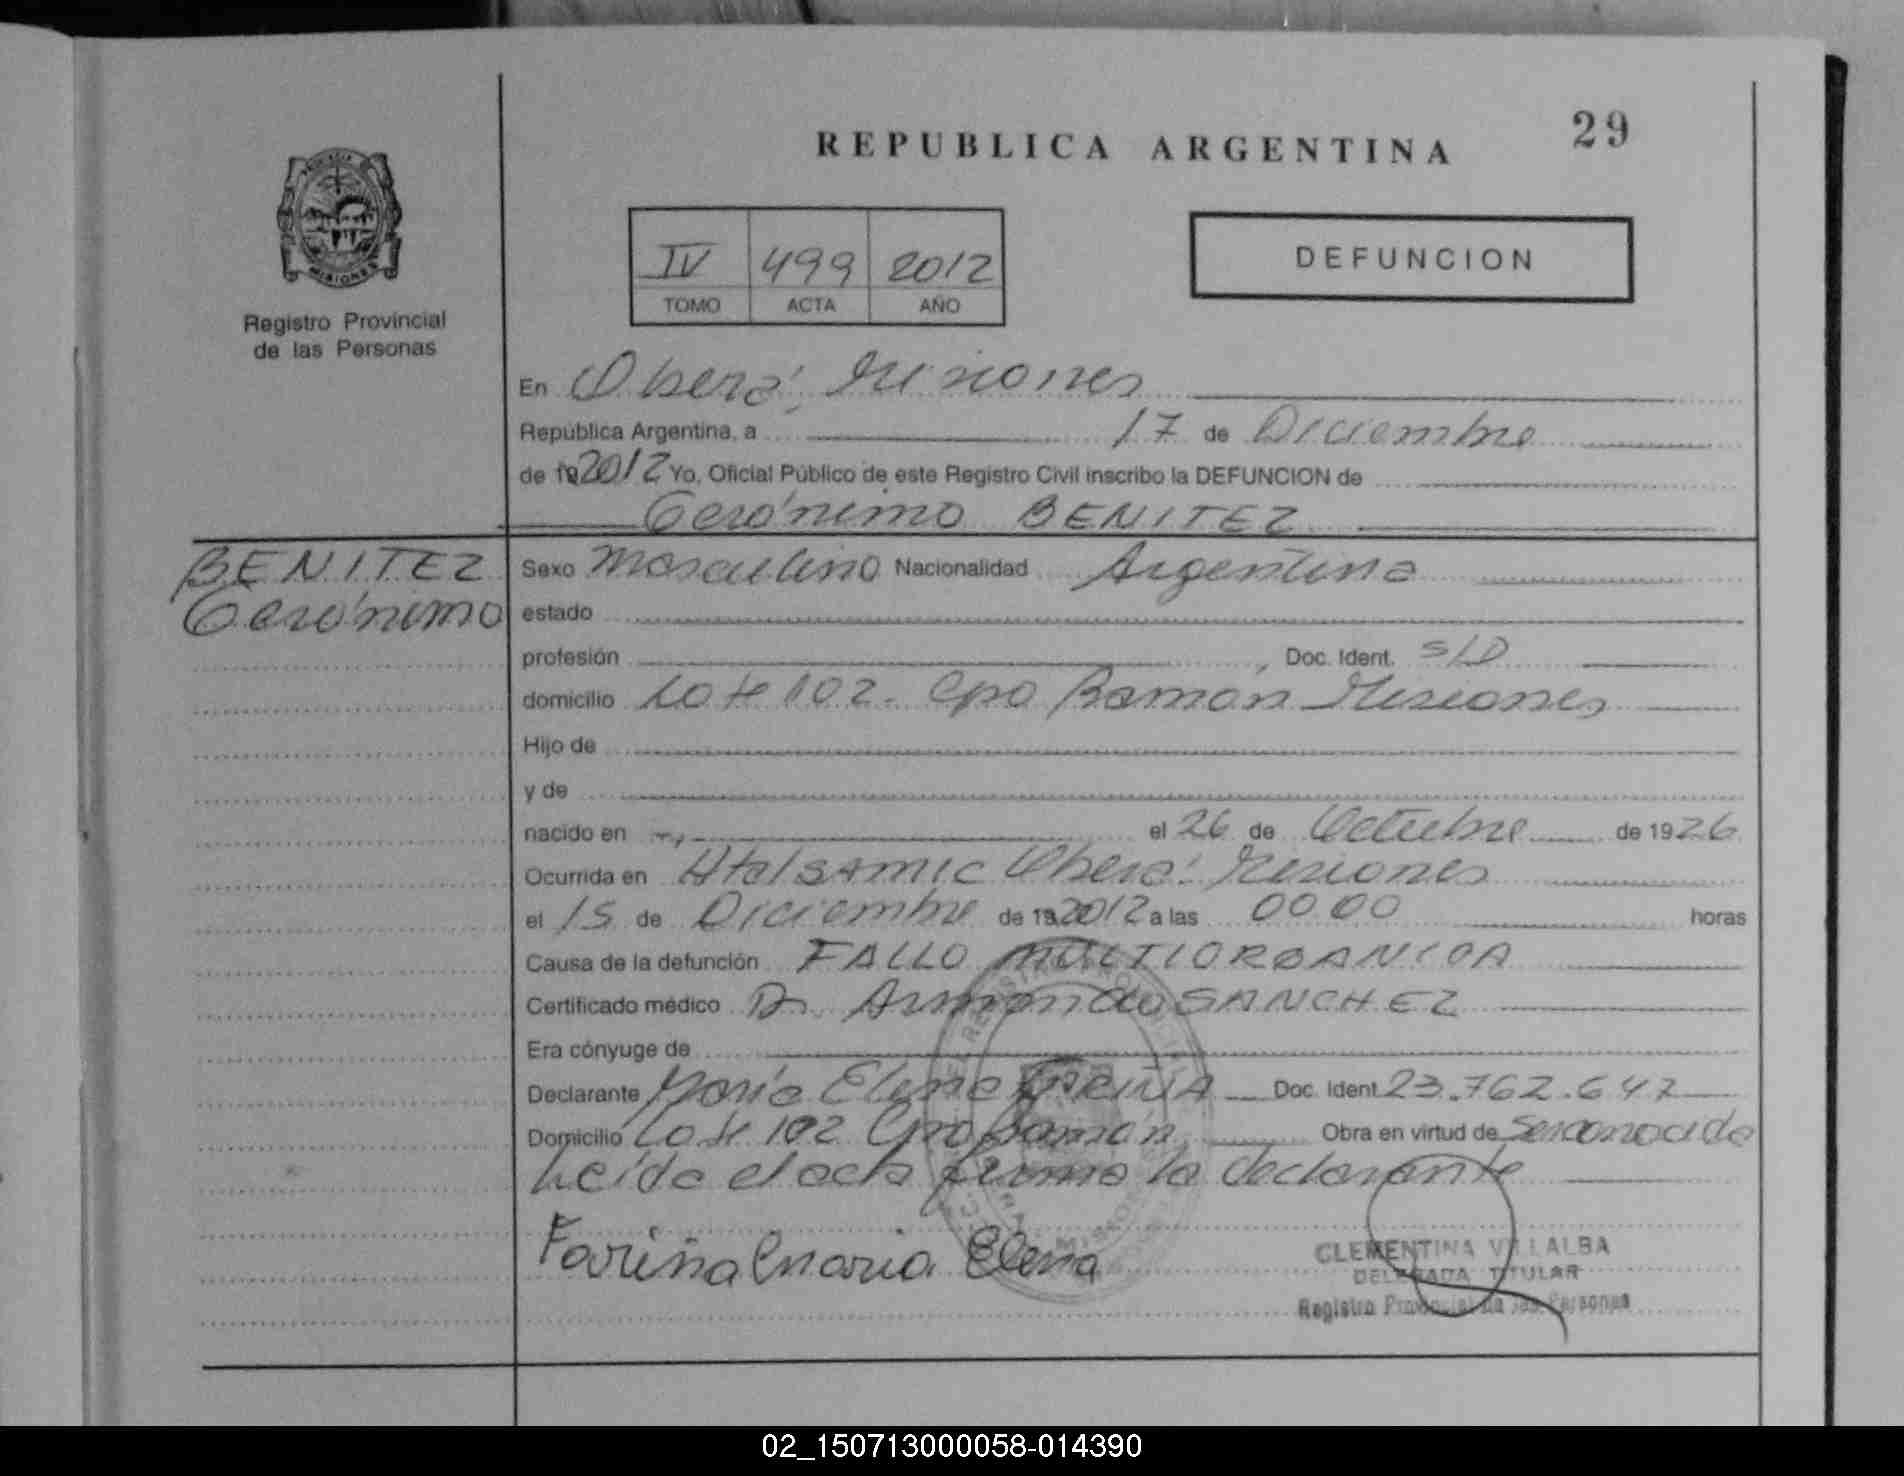 REPUBLICA ARGENTINA
29
MISIONES
Registro Provincial
de las Personas
IV 499 2012
TOMO ACTA AÑO
DEFUNCION
En Oberá, Misiones
República Argentina, a 17 de Diciembre
de 192012 Yo, Oficial Público de este Registro Civil inscribo la DEFUNCION de
Gerónimo BENITEZ
BENITEZ
Gerónimo
Sexo Masculino Nacionalidad Argentina
estado
profesión , Doc. Ident. S/D
domicilio Lote 102. Cpo Ramón Misiones
Hijo de
y de
nacido en -, el 26 de Octubre de 1926
Ocurrida en Htal SAMIC Oberá. Misiones
el 15 de Diciembre de 192012 a las 00.00 horas
Causa de la defunción FALLO MULTIORGANICA
Certificado médico Dr. Armando SANCHEZ
Era cónyuge de
Declarante María Elena FARIÑA Doc. Ident. 23.762.647
Domicilio Lote 102 Cpo Ramón, Obra en virtud de
Leída el acta firma la declarante
Fariña Maria Elena
CLEMENTINA VILLALBA
DELEGADA TITULAR
Registro Provincial de las Personas
02_150713000058-014390